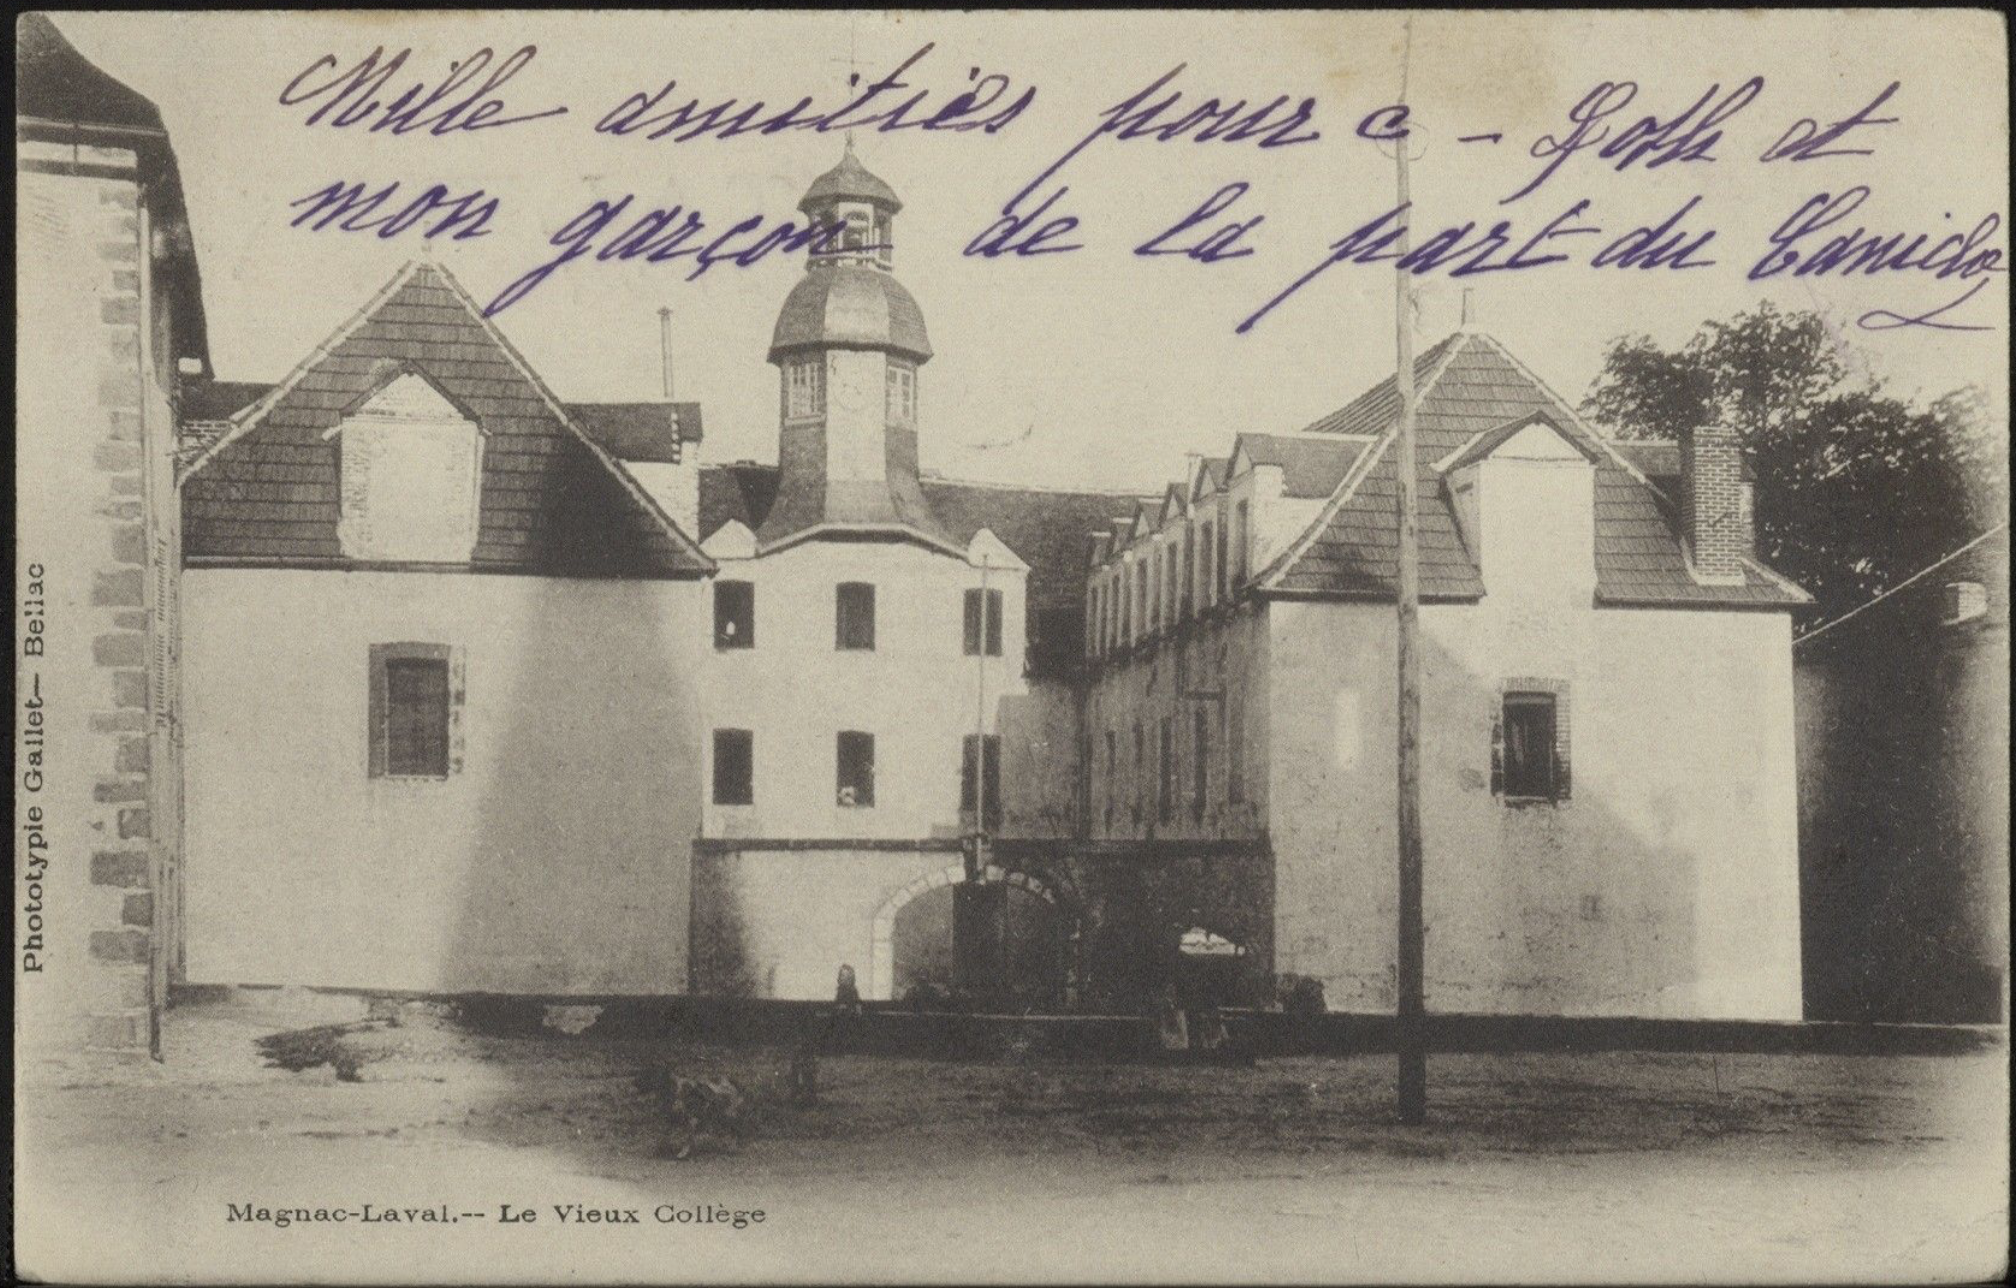 Mille amitiés pour c - Loth et
mon garçon de la part du Canido
Phototypie Gallet— Bellac
Magnac-Laval.-- Le Vieux Collège